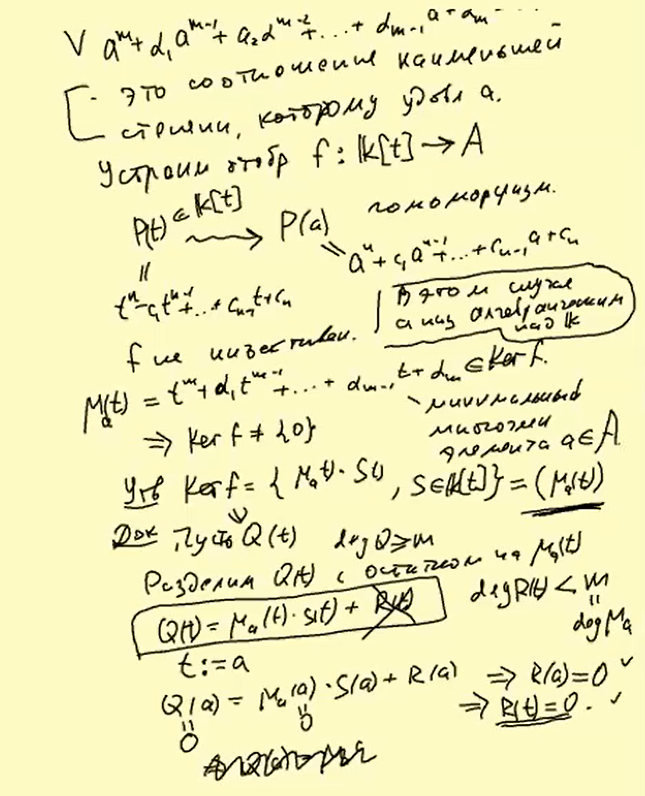 ∀ a^m + α_1 a^{m-1} + α_2 α^{m-2} + ... + α_{m-1} a + α_m ...
Это соотношение наименьшей
степени, которому удовл a.
Устроим отобр f : k[t] → A
P(t) ∈ k[t] ⇝ P(a) гомоморфизм.
a^n + c_1 a^{n-1} + ... + c_{n-1} a + c_n
t^n + c_1 t^{n-1} + ... + c_{n-1} t + c_n
В этом случае
a наз алгебраическим
над k
f не инъективен.
μ_a(t) = t^m + α_1 t^{m-1} + ... + α_{m-1} t + α_m ∈ Ker f.
минимальный
⇒ Ker f ≠ {0} многочлен
элемента a ∈ A
Утв Ker f = { μ_a(t) · S(t) , S ∈ k[t] } = (μ_a(t))
Док Пусть Q(t) deg Q ≥ m
Разделим Q(t) с остатком на μ_a(t)
Q(t) = μ_a(t) · S(t) + R(t) deg R(t) < m
= deg μ_a
t := a
Q(a) = μ_a(a) · S(a) + R(a) ⇒ R(a) = 0 ✓
0 0 ⇒ R(t) = 0 . ✓